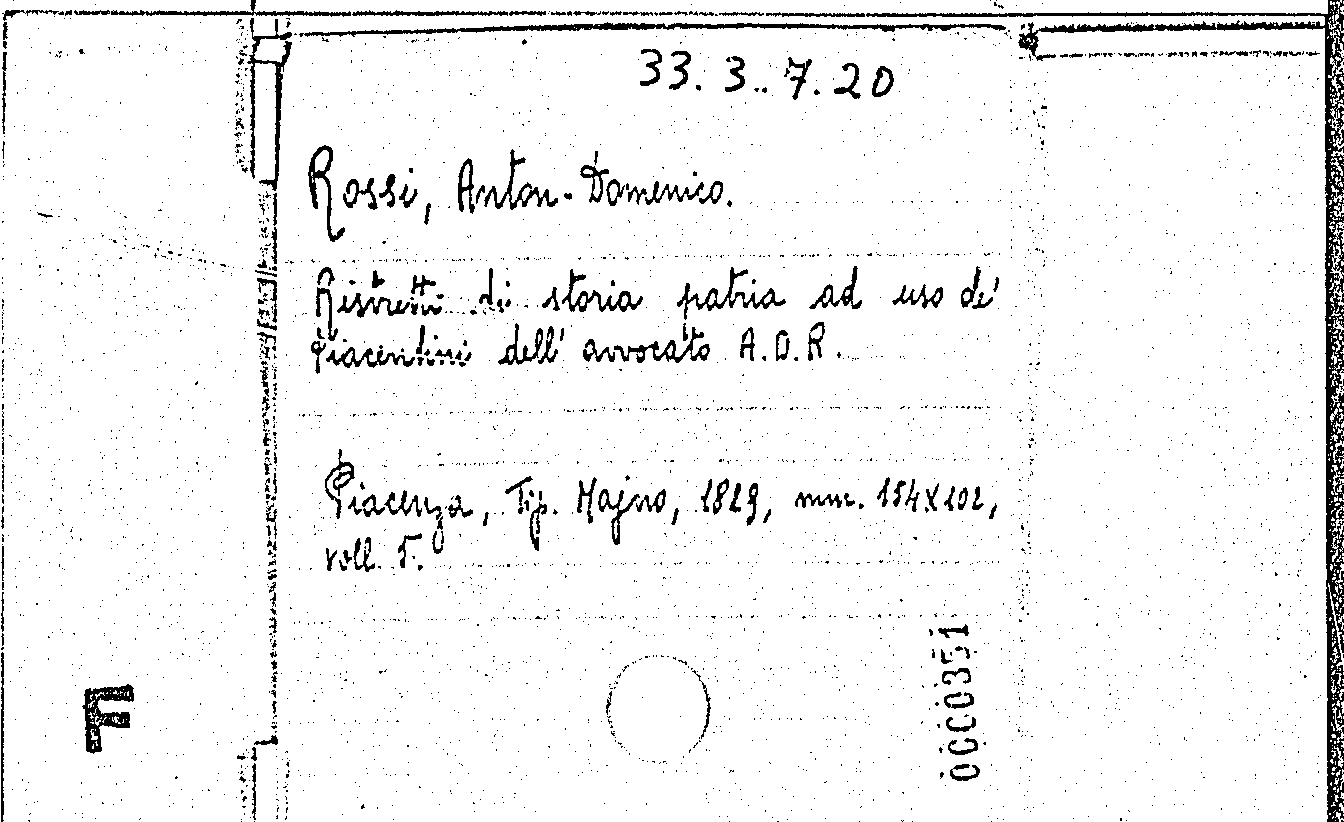 33. 3.. 7. 20
Rossi, Anton-Domenico.
Ristretti di storia patria ad uso de'
Piacentini dell' avvocato A.D.R.
Piacenza, Tip. Majno, 1829, mm. 154X102,
voll. 5.
0000351
F